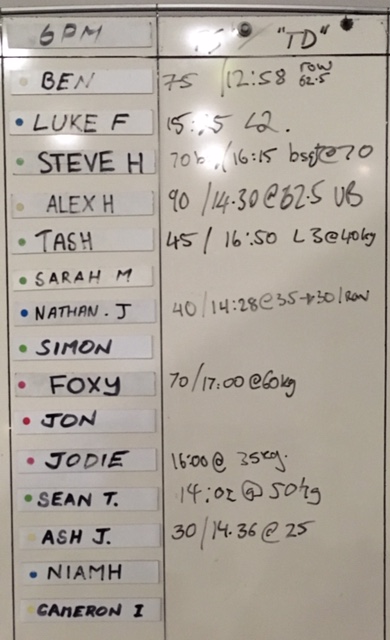 6PM "TD"
BEN 75 /12:58 row 62.5
LUKE F L2.
STEVE H /16:15 @70
ALEX H 90 /14.30@62.5 UB
TASH 45 / 16:50 L3@40kg
SARAH M
NATHAN.J 40/14:28@35→30/row
SIMON
FOXY 70/17:00@60kg
JON
JODIE 16:00@ 35kg.
SEAN T. 14:02 @50kg
ASH J. 30/14.36@25
NIAMH
CAMERON I